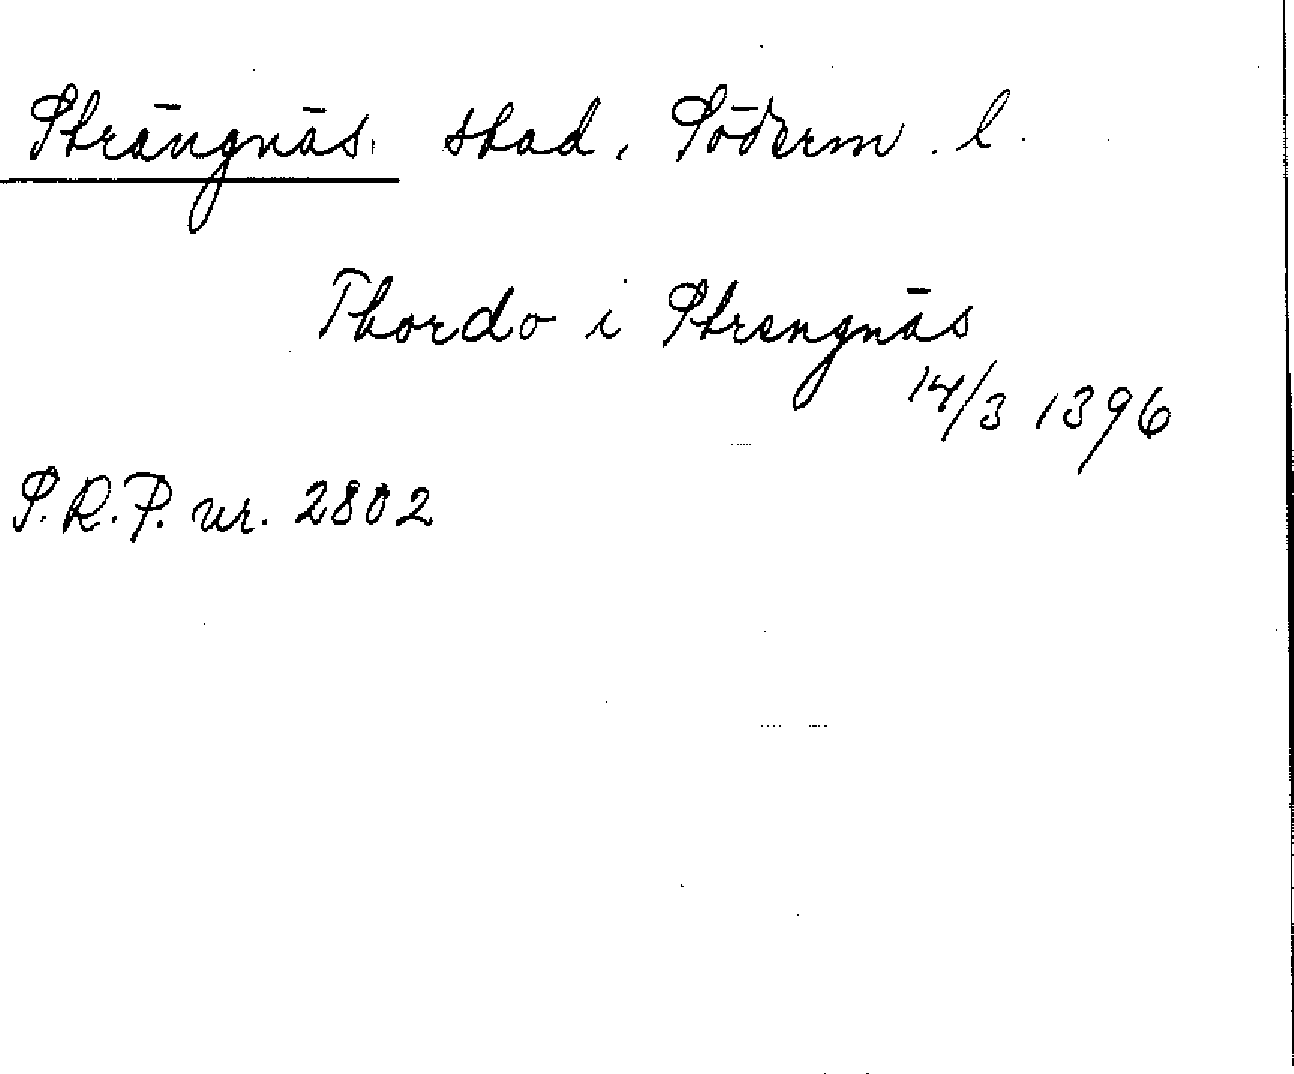 Strängnäs, stad, Söderm. l.
Thordo i Strengnäs
14/3 1396
S.R.P. nr. 2802